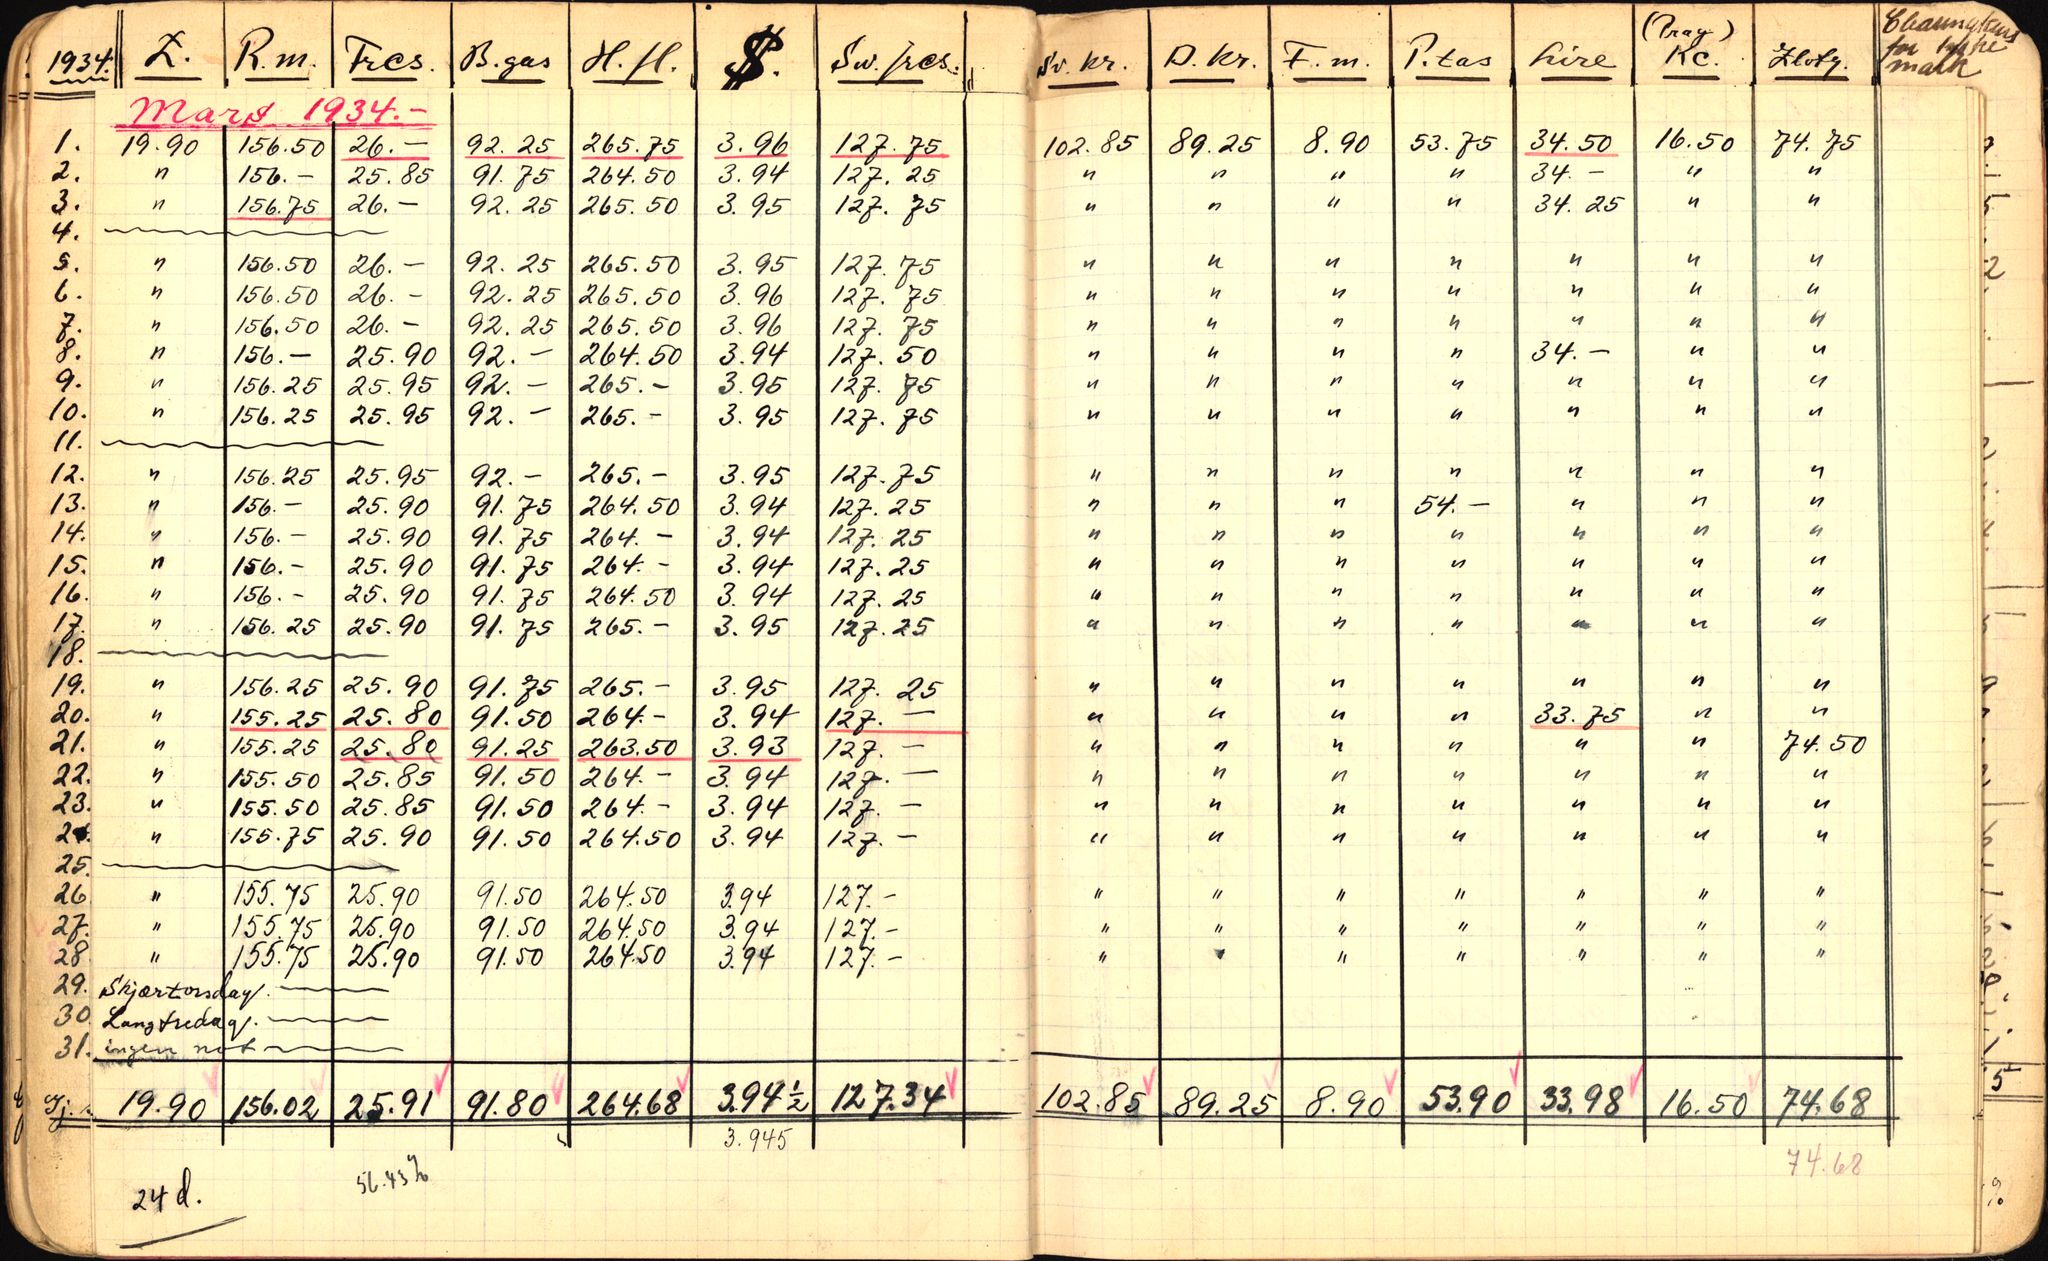 1934. £. R.m. Frcs. B.gas H.fl. $. Sw.frcs. Sv.kr. D.Kr. F.m. P.tas Lire (Prag) Kc. Zloty. Clearingkurs for tyske mark
Mars 1934.-
1. 19.90 156.50 26.- 92.25 265.75 3.96 127.75 102.85 89.25 8.90 53.75 34.50 16.50 74.75
2. " 156.- 25.85 91.75 264.50 3.94 127.25 " " " " 34.- " "
3. " 156.75 26.- 92.25 265.50 3.95 127.75 " " " " 34.25 " "
4.
5. " 156.50 26.- 92.25 265.50 3.95 127.75 " " " " " " "
6. " 156.50 26.- 92.25 265.50 3.96 127.75 " " " " " " "
7. " 156.50 26.- 92.25 265.50 3.96 127.75 " " " " " " "
8. " 156.- 25.90 92.- 264.50 3.94 127.50 " " " " 34.- " "
9. " 156.25 25.95 92.- 265.- 3.95 127.75 " " " " " " "
10. " 156.25 25.95 92.- 265.- 3.95 127.75 " " " " " " "
11.
12. " 156.25 25.95 92.- 265.- 3.95 127.75 " " " " " " "
13. " 156.- 25.90 91.75 264.50 3.94 127.25 " " " 54.- " " "
14. " 156.- 25.90 91.75 264.- 3.94 127.25 " " " " " " "
15. " 156.- 25.90 91.75 264.- 3.94 127.25 " " " " " " "
16. " 156.- 25.90 91.75 264.50 3.94 127.25 " " " " " " "
17. " 156.25 25.90 91.75 265.- 3.95 127.25 " " " " " " "
18.
19. " 156.25 25.90 91.75 265.- 3.95 127.25 " " " " " " "
20. " 155.25 25.80 91.50 264.- 3.94 127.- " " " " 33.75 " "
21. " 155.25 25.80 91.25 263.50 3.93 127.- " " " " " " 74.50
22. " 155.50 25.85 91.50 264.- 3.94 127.- " " " " " " "
23. " 155.50 25.85 91.50 264.- 3.94 127.- " " " " " " "
24. " 155.75 25.90 91.50 264.50 3.94 127.- " " " " " " "
25.
26 " 155.75 25.90 91.50 264.50 3.94 127.- " " " " " " "
27. " 155.75 25.90 91.50 264.50 3.94 127.- " " " " " " "
28 " 155.75 25.90 91.50 264.50 3.94 127.- " " " " " " "
29. Skjærtorsdag.
30. Langfredag.
31. ingen not
Gj.s. 19.90 156.02 25.91 91.80 264.68 3.94 1/2 127.34 102.85 89.25 8.90 53.90 33.98 16.50 74.68
3.945
74.68
56.43%
24 d.